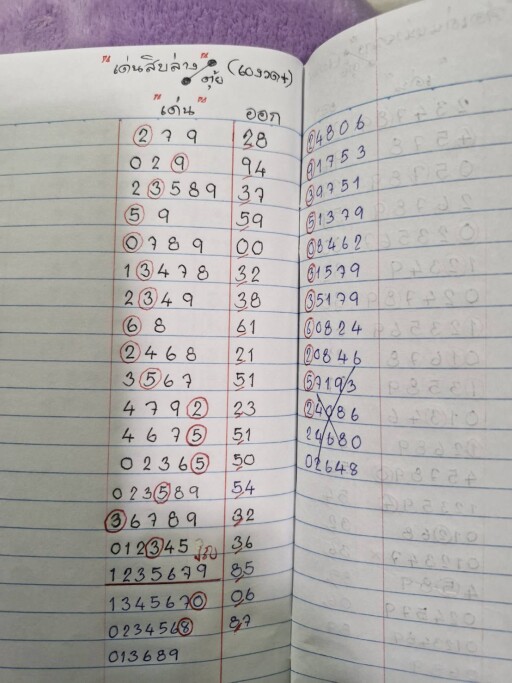 "เด่นสิบล่าง"
ตุ้ย
(เองวด+)
"เด่น" ออก
2 7 9 28 24806
0 2 9 94 91753
2 3 5 8 9 37 39751
5 9 59 51379
0 7 8 9 00 08462
1 3 4 7 8 32 31579
2 3 4 9 38 35179
6 8 61 60824
2 4 6 8 21 20846
3 5 6 7 51 57193
4 7 9 2 23 24086
4 6 7 5 51 24680
0 2 3 6 5 50 02648
0 2 3 5 8 9 54
3 6 7 8 9 32
0 1 2 3 4 5 36
1 2 3 5 6 7 9 85
1 3 4 5 6 7 0 06
0 2 3 4 5 6 8 87
0 1 3 6 8 9